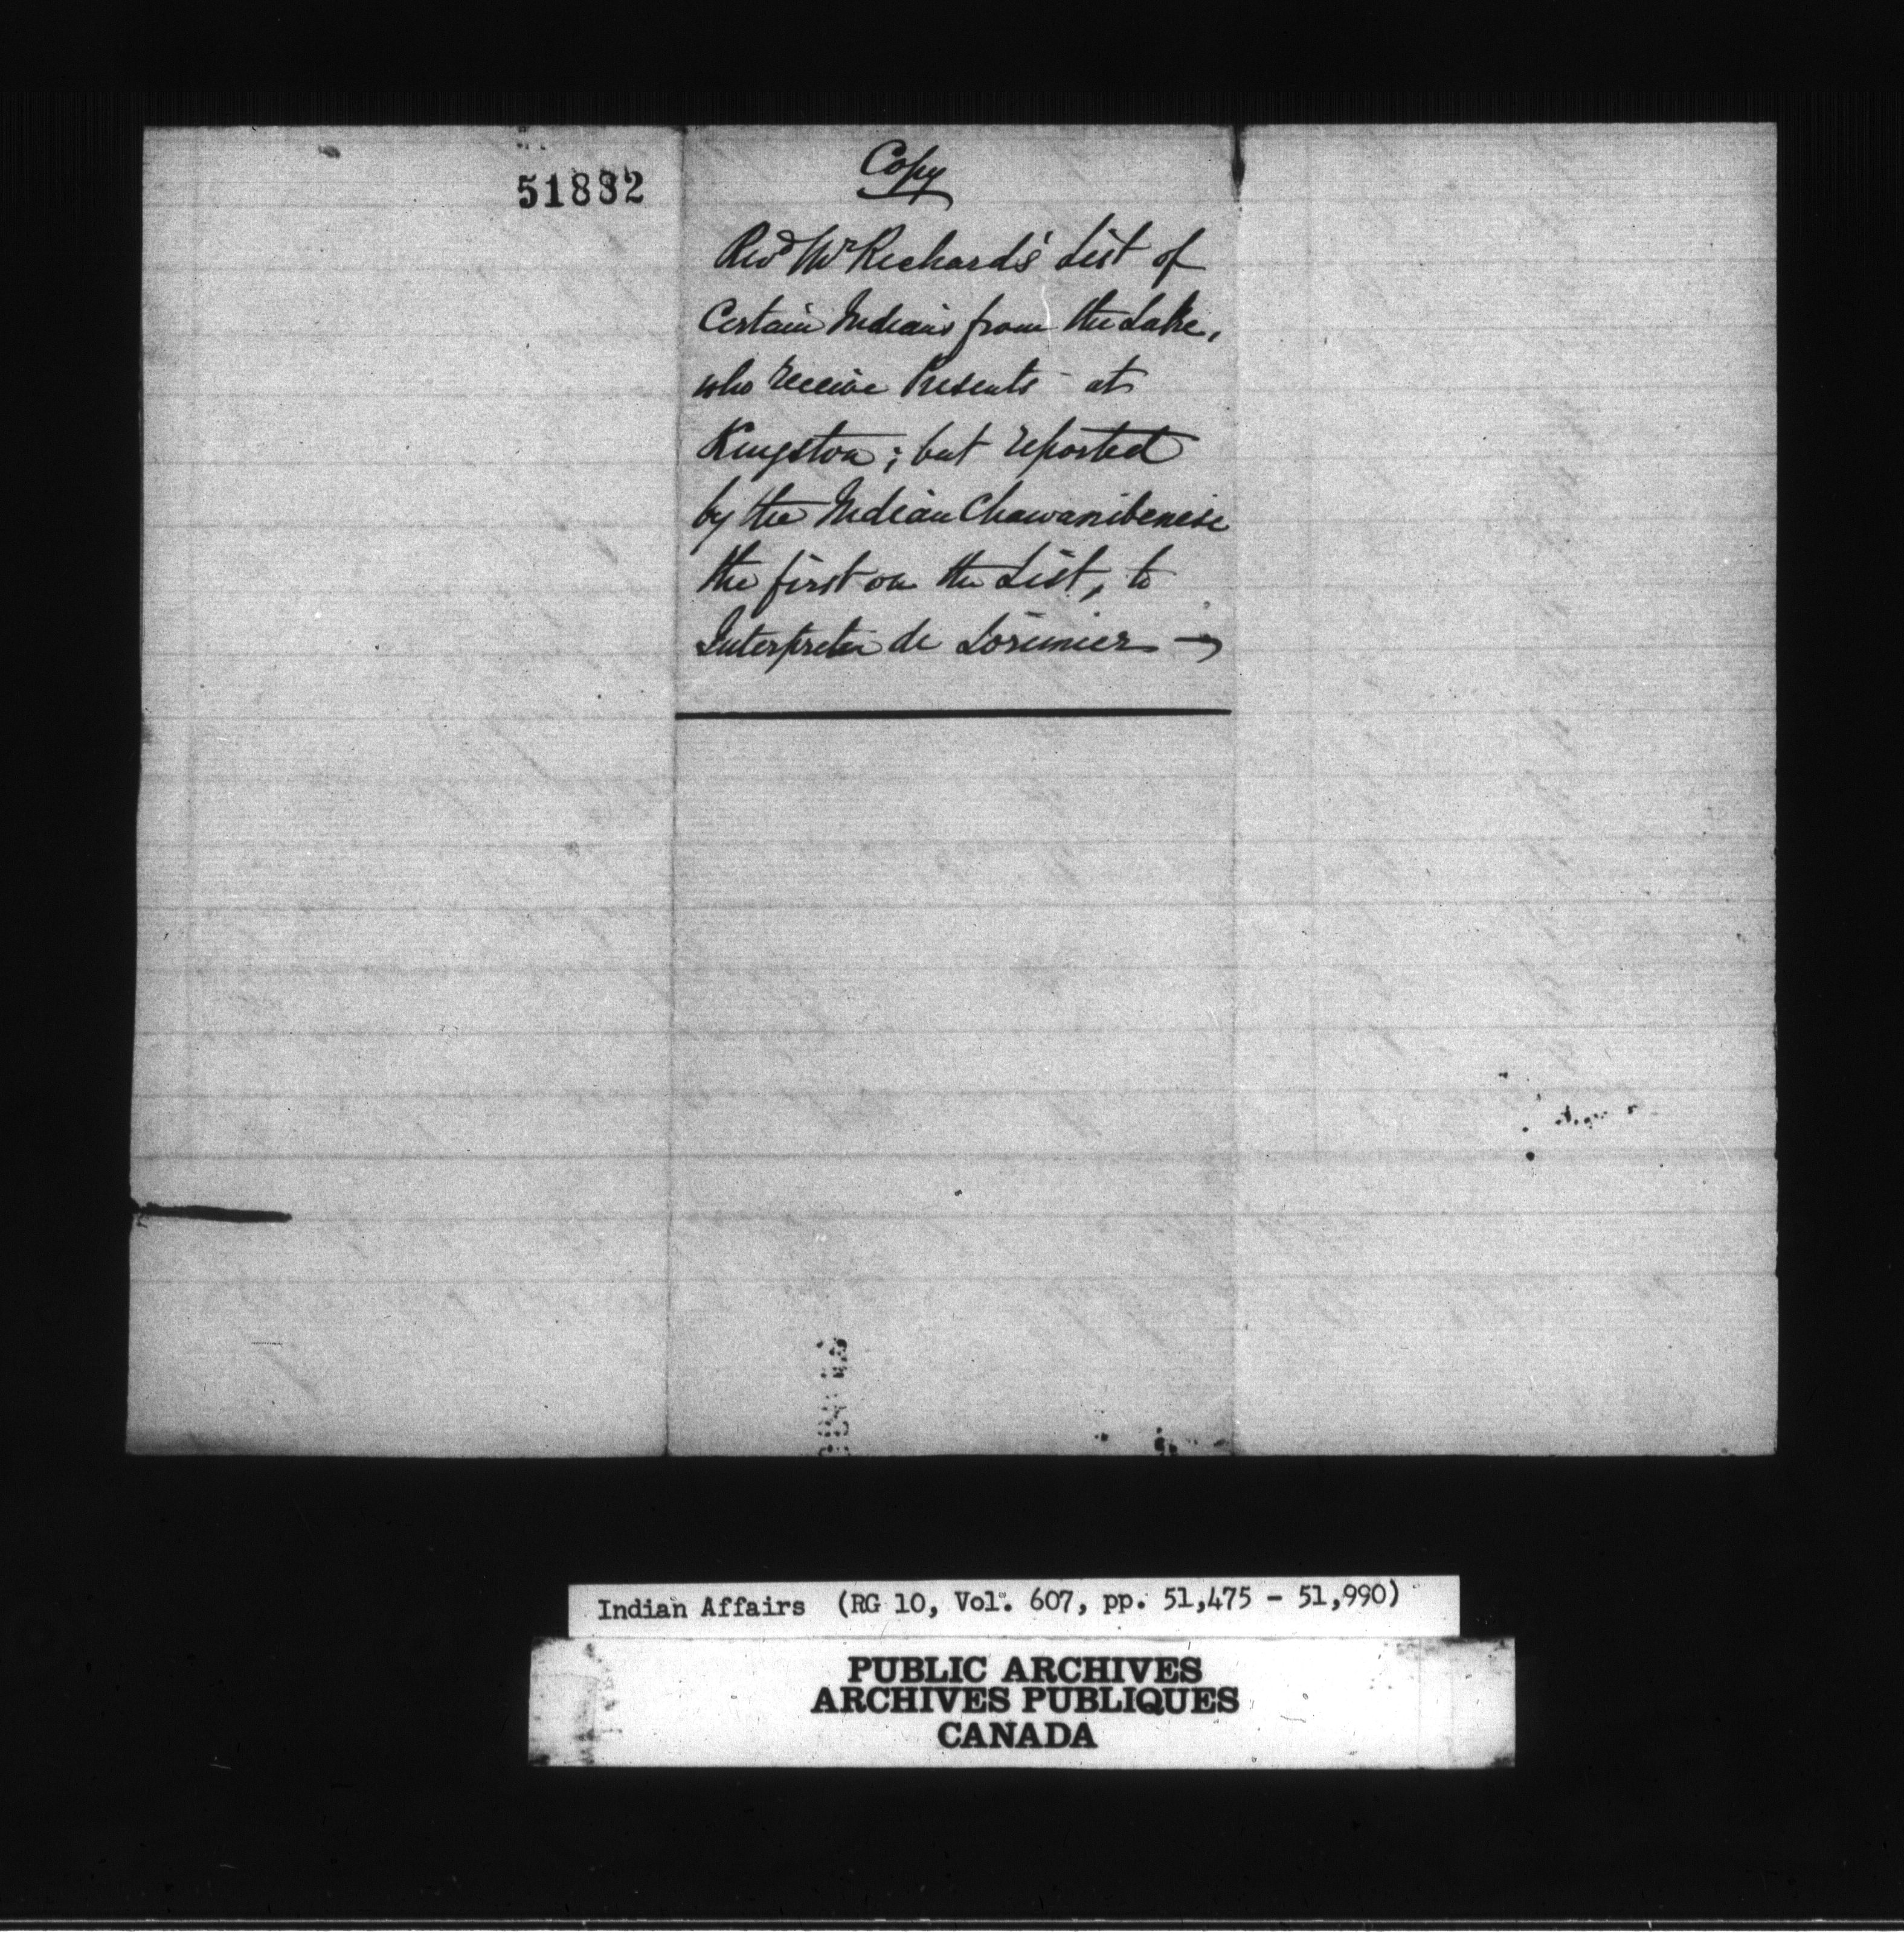 51882
Copy
Revd Mr Richard's List of
Certain Indians from the Lake,
who receive Presents at
Kingston; but reported
by the Indian Chawanibenese
the first on the List, to
Interpreter de Lorimier
Indian Affairs (RG 10, Vol. 607, pp. 51,475 - 51,990)
PUBLIC ARCHIVES
ARCHIVES PUBLIQUES
CANADA